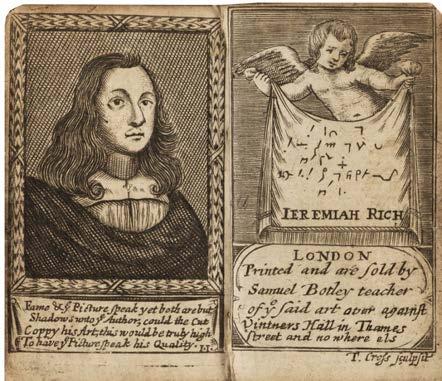 Fame & yͤ Picture speak yet both are but
Shadows unto yͤ Author, could the Cut
Coppy his Art, this would be truly high
To have yͤ Picture speak his Quality. I.I.
IEREMIAH RICH
LONDON
Printed and are sold by
Samuel Botley teacher
of yͤ said art over against
Vintners Hall in Thames
street and no where els
T. Cross sculpsit